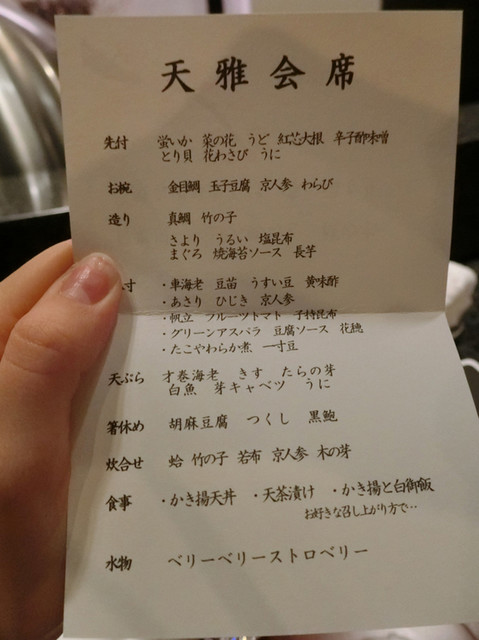 天雅会席
先付 蛍いか 菜の花 うど 紅芯大根 辛子酢味噌
とり貝 花わさび うに
お椀 金目鯛 玉子豆腐 京人参 わらび
造り 真鯛 竹の子
さより うるい 塩昆布
まぐろ 焼海苔ソース 長芋
寸 ・車海老 豆苗 うすい豆 黄味酢
・あさり ひじき 京人参
・帆立 フルーツトマト 子持昆布
・グリーンアスパラ 豆腐ソース 花穂
・たこやわらか煮 一寸豆
天ぷら 才巻海老 きす たらの芽
白魚 芽キャベツ うに
箸休め 胡麻豆腐 つくし 黒鮑
炊合せ 蛤 竹の子 若布 京人参 木の芽
食事 ・かき揚天丼 ・天茶漬け ・かき揚と白御飯
お好きな召し上がり方で…
水物 ベリーベリーストロベリー